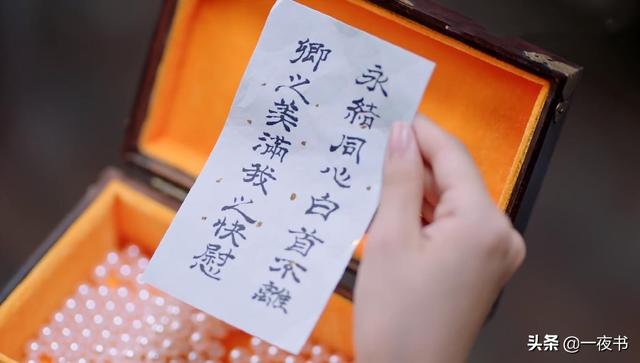 永結同心白首不離
卿之美滿我之快慰
头条 @一夜书